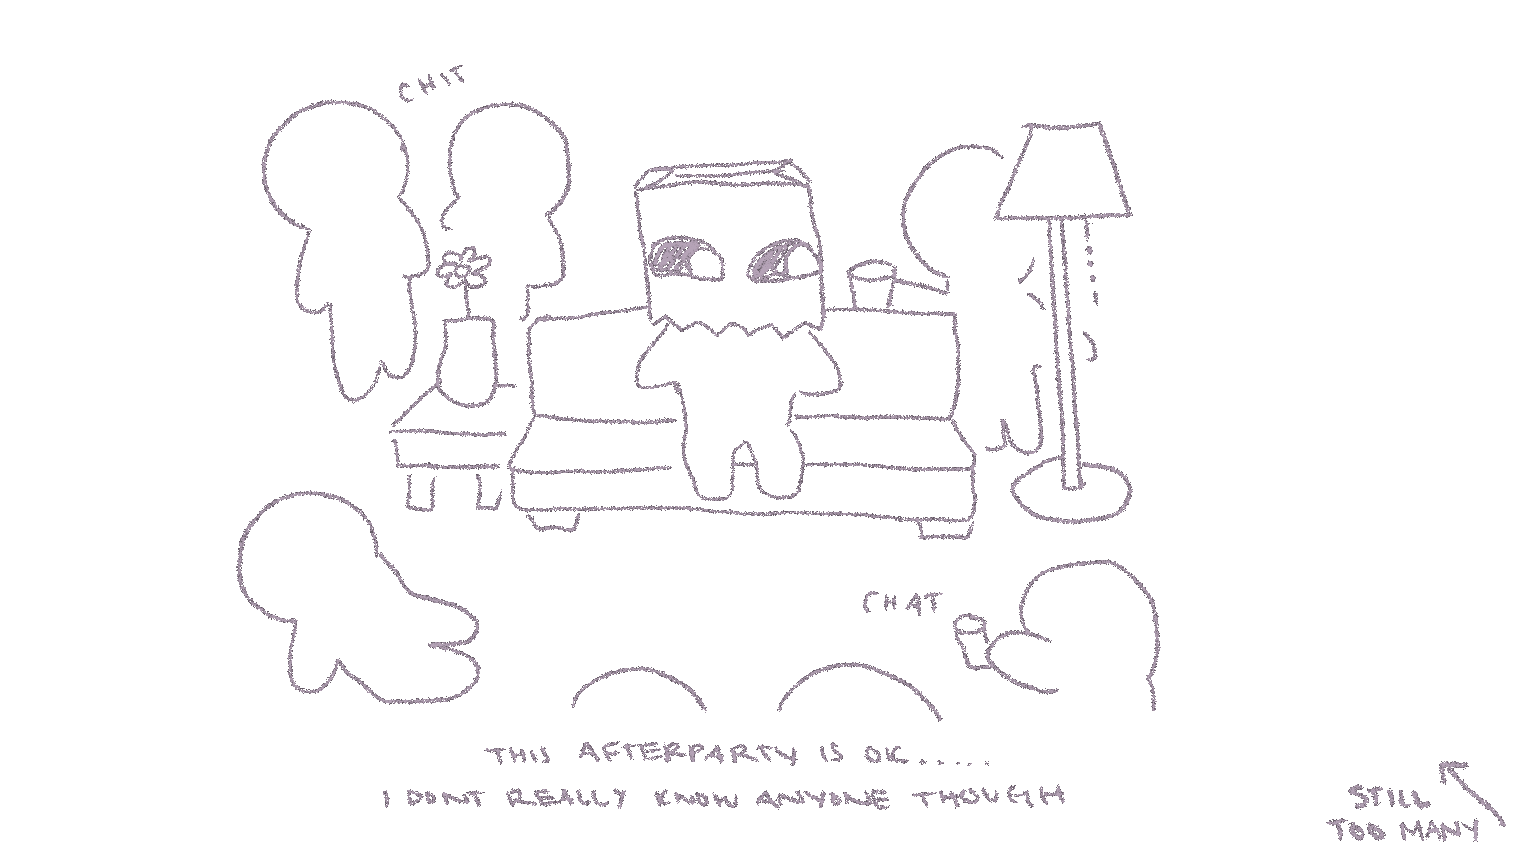 CHIT
CHAT
THIS AFTERPARTY IS OK.....
I DONT REALLY KNOW ANYONE THOUGH
STILL
TOO MANY